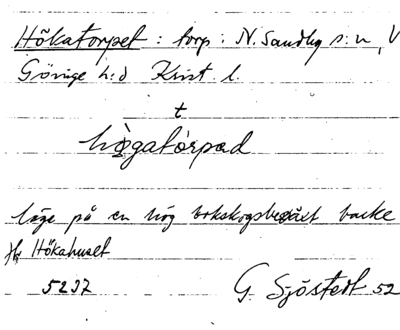 Hökatorpet : torp : N. Sandby s:n, V
Göinge h:d Krist. l.
t
hògatòrpad
läge på en hög bokskogsbeväxt backe
Hökahuset
5237 G Sjöstedt 52